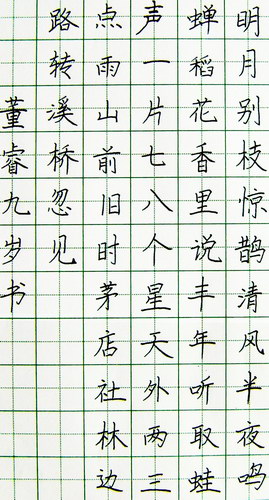 明月别枝惊鹊清风半夜鸣
蝉稻花香里说丰年听取蛙
声一片七八个星天外两三
点雨山前旧时茅店社林边
路转溪桥忽见
董睿九岁书